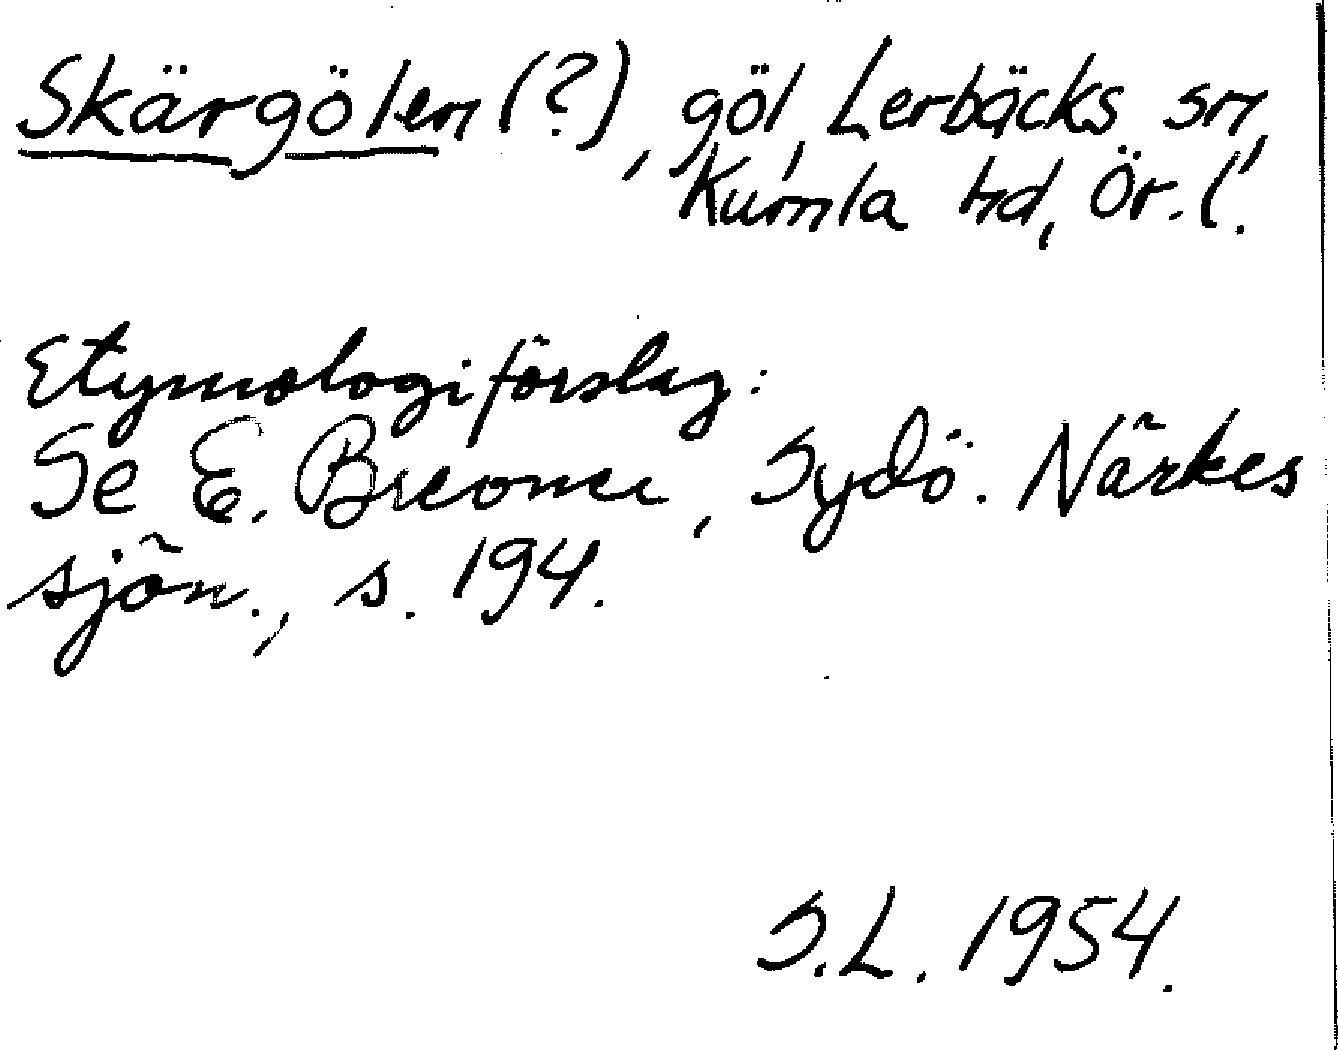 Skärgölen (?), göl, Lerbäcks sn,
Kumla hd, Ör. l.
Etymologiförslag:
Se E. Breomer, Sydö. Närkes
sjön., s. 194.
S.L. 1954.